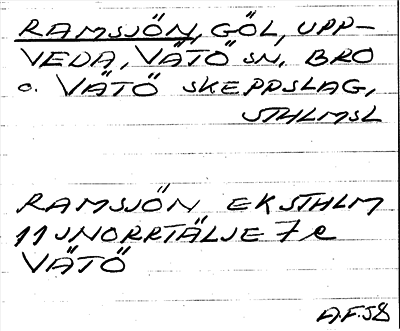 RAMSJÖN, GÖL, UPP-
VEDA, VÄTÖ SN, BRO
O. VÄTÖ SKEPPSLAG,
STHLMSL
RAMSJÖN EKSTHLM
11 JNORRTÄLJE 7 e
VÄTÖ
A.F.58